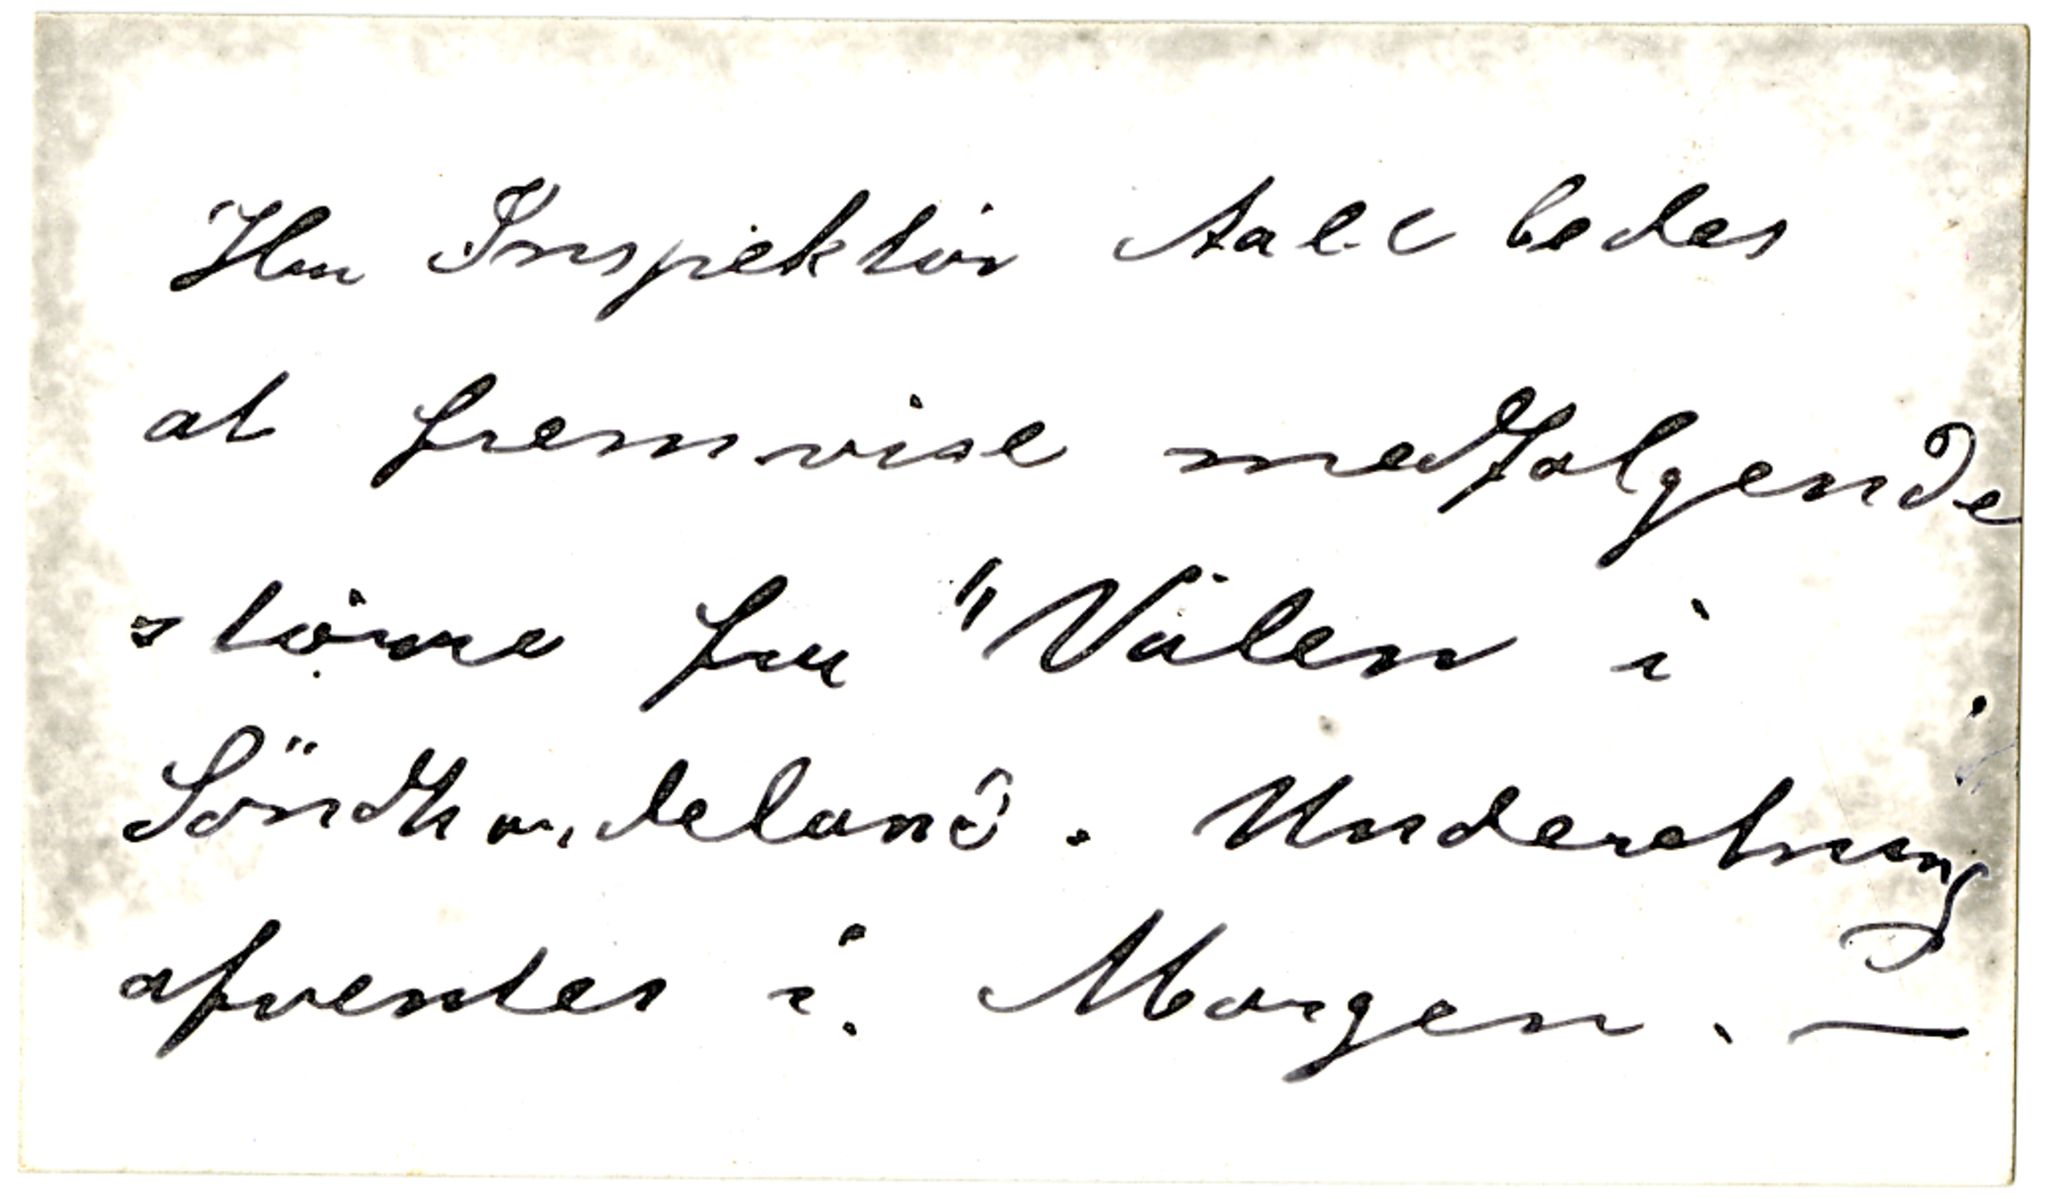 Hrr Inspektör Aall bedes
at fremvise medfølgende
större fra "Välen i
Söndhordeland. Underetning
afventes i Morgen. —